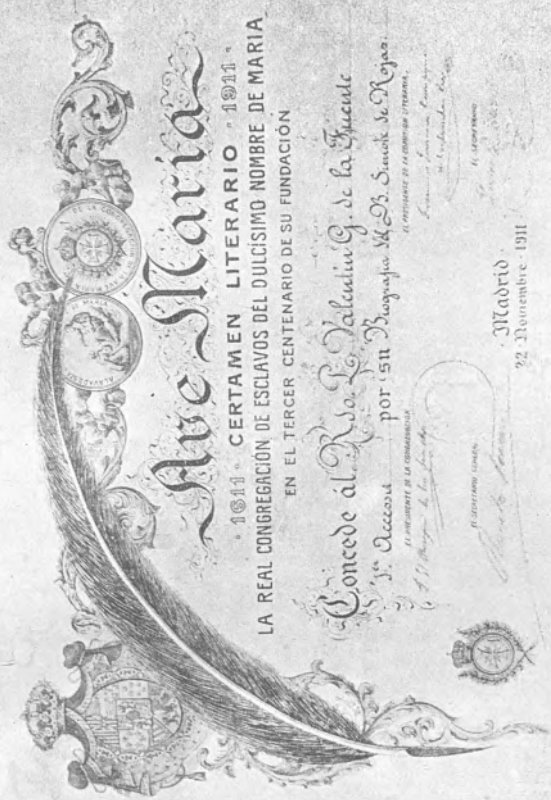 Ave Maria
· 1611 · CERTAMEN LITERARIO · 1911 ·
LA REAL CONGREGACIÓN DE ESCLAVOS DEL DULCÍSIMO NOMBRE DE MARIA
EN EL TERCER CENTENARIO DE SU FUNDACIÓN
Concede al R.do P. Valentin G. de la Fuente
Accesit por su Biografia del B. Simón de Rojas.
EL PRESIDENTE DE LA CONGREGACIÓN
EL PRESIDENTE DE LA COMISIÓN LITERARIA,
EL SECRETARIO
EL SECRETARIO
Madrid
22 · Noviembre · 1911